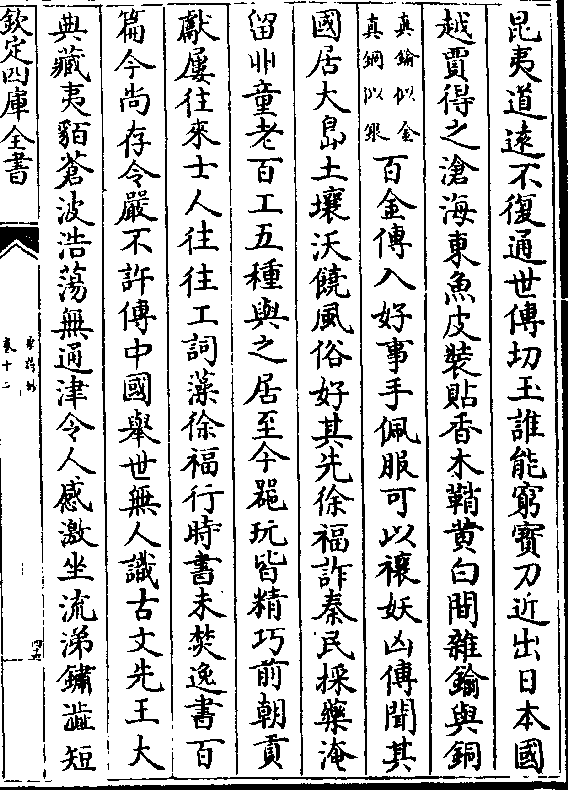 昆夷道逺不復通世傳切玉誰能窮寳刀近出日本國
越賈得之滄海東魚皮裝貼香木鞘黄白間雜鍮與銅
真鍮似金
真銅似銀
百金傳入好事手佩服可以禳妖凶傳聞其
國居大㠀土壤沃饒風俗好其先徐福詐秦民採藥淹
留丱童老百工五種與之居至今噐玩皆精巧前朝貢
獻屢往來士人往往工詞藻徐福行時書未焚逸書百
篇今尚存令嚴不許傳中國舉世無人識古文先王大
典藏夷貊蒼波浩蕩無通津令人感激坐流涕鏽澁短
欽定四庫全書
卷十二